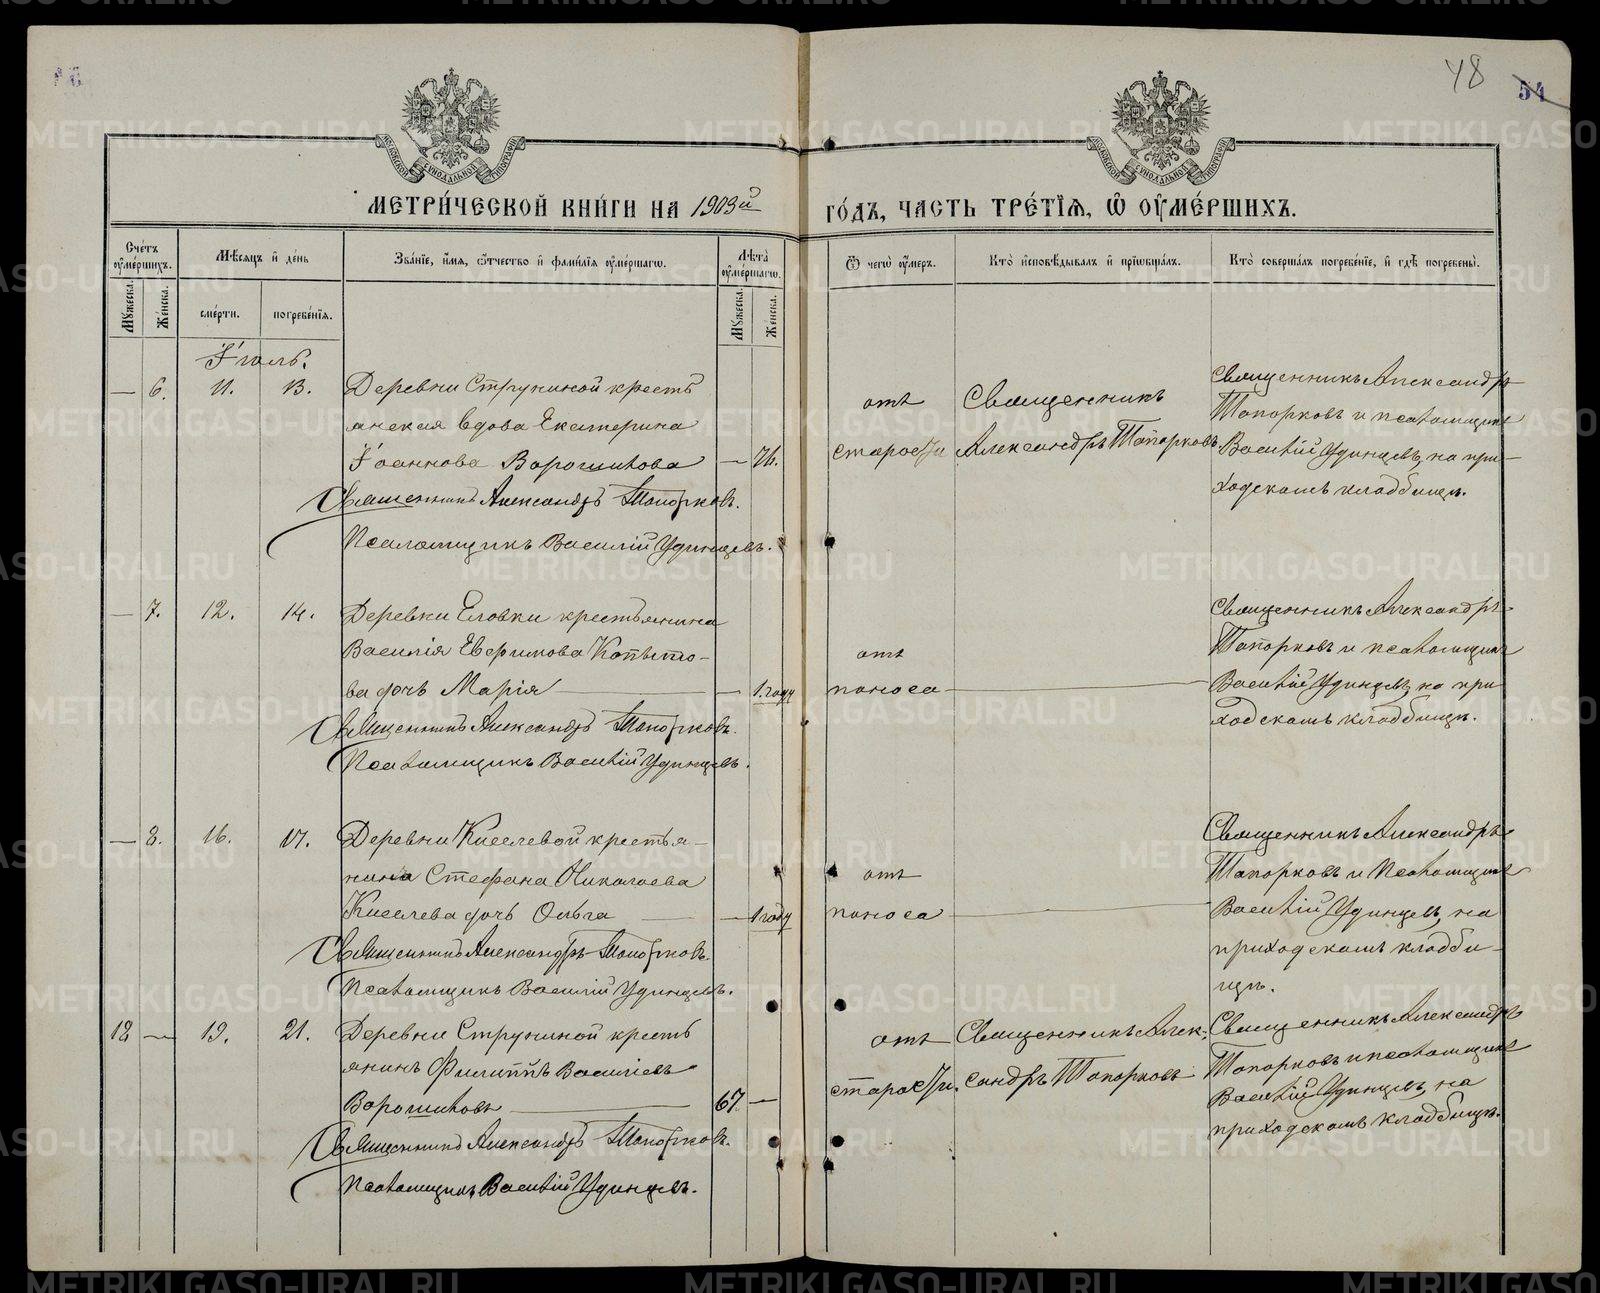 48
54
МОСКОВСКОЙ СУНОДАЛЬНОЙ ТИПОГРАФІИ
МОСКОВСКОЙ СУНОДАЛЬНОЙ ТИПОГРАФІИ
МЕТРИ́ЧЕСКОЙ КНИ́ГИ НА 1903й
ГО́ДЪ, ЧАСТЬ ТРЕ́ТІѦ, Ѿ ОУМЕ́РШИХЪ.
Сче́тъ оуме́ршихъ.
Мѣ́сѧцъ и҆ де́нь
Зва́нїе, и҆́мѧ, ѻ҆́тчество и҆ фами́лїѧ оуме́ршагѡ.
Лѣ́та оуме́ршагѡ.
Ѿ чегѡ̀ оу́меръ.
Кто̀ и҆сповѣ́дывалъ и҆ прїѡбща́лъ.
Кто̀ соверша́лъ погребе́нїе, и҆ гдѣ̀ погребены̀.
Му́жеска.
Же́нска.
сме́рти.
погребе́нїѧ.
Му́жеска.
Же́нска.
Іюль.
— 6. 11. 13. Деревни Струниной кресть
янская вдова Екатерина
Іоаннова Ворошилова — 76.
Священникъ Александръ Топорковъ.
Псаломщикъ Василій Удинцевъ.
отъ
старости
Священникъ
Александръ Топорковъ.
Священникъ Александръ
Топорковъ и псаломщикъ
Василій Удинцевъ, на при-
ходскомъ кладбищѣ.
— 7. 12. 14. Деревни Еловки крестьянина
Василія Евфимова Копыто-
ва дочь Марія — 1. году
Священникъ Александръ Топорковъ.
Псаломщикъ Василій Удинцевъ.
отъ
поноса
Священникъ Александръ
Топорковъ и псаломщикъ
Василій Удинцевъ, на при
ходскомъ кладбищѣ.
— 8. 16. 17. Деревни Киселевой крестья-
нина Стефана Николаева
Киселева дочь Ольга — 1 году
Священникъ Александръ Топорковъ.
Псаломщикъ Василій Удинцевъ.
отъ
поноса
Священникъ Александръ
Топорковъ и Псаломщикъ
Василій Удинцевъ, на
приходскомъ кладби-
щѣ.
12 — 19. 21. Деревни Струниной кресть
янинъ Филиппъ Василіевъ
Ворошиловъ 67 —
Священникъ Александръ Топорковъ.
Псаломщикъ Василій Удинцевъ.
отъ
старости.
Священникъ Алек-
сандръ Топорковъ
Священникъ Александръ
Топорковъ и псаломщикъ
Василій Удинцевъ, на
приходскомъ кладбищѣ.
METRIKI.GASO-URAL.RU